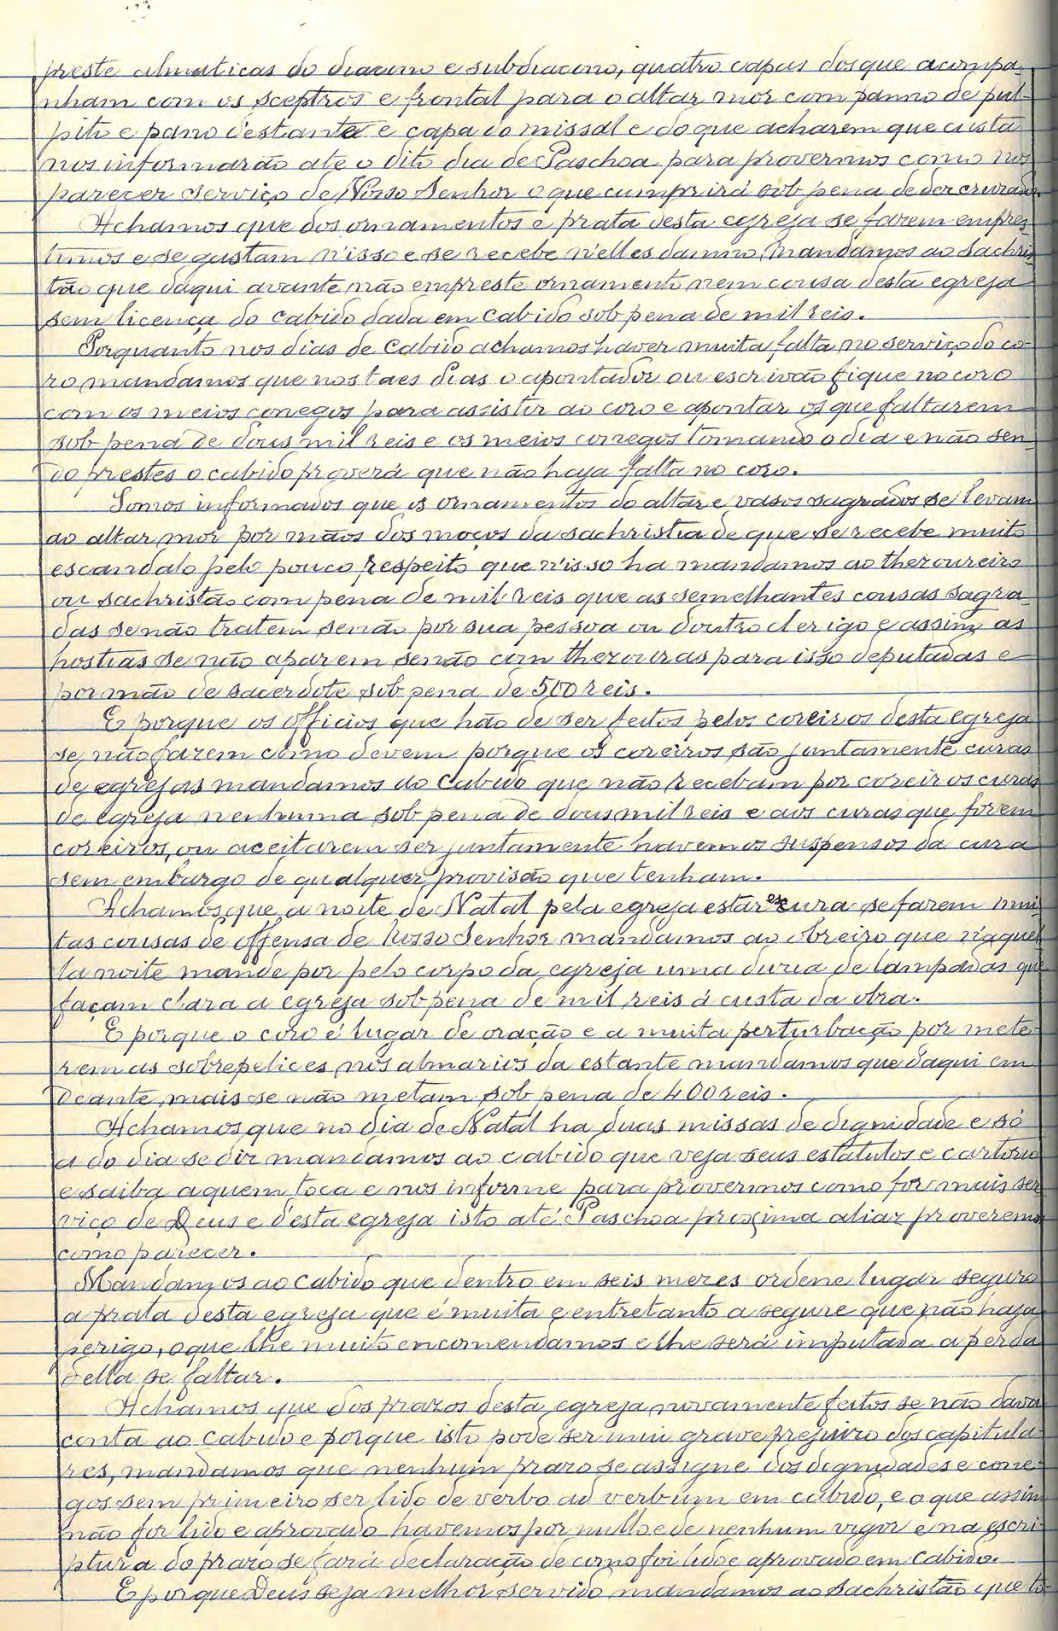 preste almaticas do diacono e subdiacono, quatro capas dos que acompa-
nham com os sceptros e frontal para o altar mór com panno de pul-
pito e pano d'estante e capa do missal e do que acharem que custa
nos informarão até o dito dia de Paschoa para provermos como nos
parecer serviço de Nosso Senhor o que cumprirá sob pena de dez cruzados.
Achamos que dos ornamentos e prata desta egreja se fazem empres-
timos e se gastam n'isso e se recebe n'elles damno, mandamos ao sachris-
tão que daqui avante não empreste ornamento nem cousa desta egreja
sem licença do cabido dada em cabido sob pena de mil reis.
Porquanto nos dias de cabido achamos haver muita falta no serviço do co-
ro mandamos que nos taes dias o apontador ou escrivão fique no coro
com os meios conegos para assistir ao coro e apontar os que faltarem
sob pena de dous mil reis e os meios conegos tomando o dia e não sen-
do prestes o cabido proverá que não haja falta no coro.
Somos informados que os ornamentos do altar e vasos sagrados se levam
ao altar mór por mãos dos moços da sachristia de que se recebe muito
escandalo pelo pouco respeito que n'isso ha mandamos ao thezoureiro
ou sachristão com pena de mil reis que as semelhantes cousas sagra-
das se não tratem senão por sua pessoa ou doutro clerigo e assim as
hostias se não aparem senão com thezouras para isso deputadas e
por mão de sacerdote sob pena de 500 reis.
E porque os officios que hão de ser feitos pelos coreiros desta egreja
se não fazem como devem porque os coreiros são juntamente curas
de egrejas mandamos ao cabido que não recebam por coreiros curas
de egreja nenhuma sob pena de dous mil reis e aos curas que forem
coreiros, ou aceitarem ser juntamente havemos suspensos da cura
sem embargo de qualquer provisão que tenham.
Achamos que a noite de Natal pela egreja estar escura se fazem mui-
tas cousas de offensa de Nosso Senhor mandamos ao obreiro que n'aquel-
la noite mande por pelo corpo da egreja uma duzia de lampadas que
façam clara a egreja sob pena de mil reis á custa da obra.
E porque o coro é lugar de oração e a muita perturbação por mete-
rem as sobrepelices nos almarios da estante mandamos que daqui em
deante mais se não metam sob pena de 400 reis.
Achamos que no dia de Natal ha duas missas de dignidade e só
a do dia se diz mandamos ao cabido que veja seus estatutos e cartorio
e saiba a quem toca e nos informe para provermos como for mais ser-
viço de Deus e d'esta egreja isto até Paschoa proxima aliaz proveremos
como parecer.
Mandamos ao cabido que dentro em seis mezes ordene lugar seguro
a prata desta egreja que é muita e entretanto a segure que não haja
perigo, o que lhe muito encomendamos e lhe será imputada a perda
della se faltar.
Achamos que dos prazos desta egreja novamente feitos se não dava
conta ao cabido e porque isto pode ser mui grave prejuizo dos capitula-
res, mandamos que nenhum prazo se assigne dos dignidades e cone-
gos sem primeiro ser lido de verbo ad verbum em cabido, e o que assim
não for lido e aprovado havemos por nullo e de nenhum vigor e na escri-
ptura do prazo se fará declaração de como foi lido e aprovado em cabido.
E porque Deus seja melhor servido mandamos ao sachristão que to-